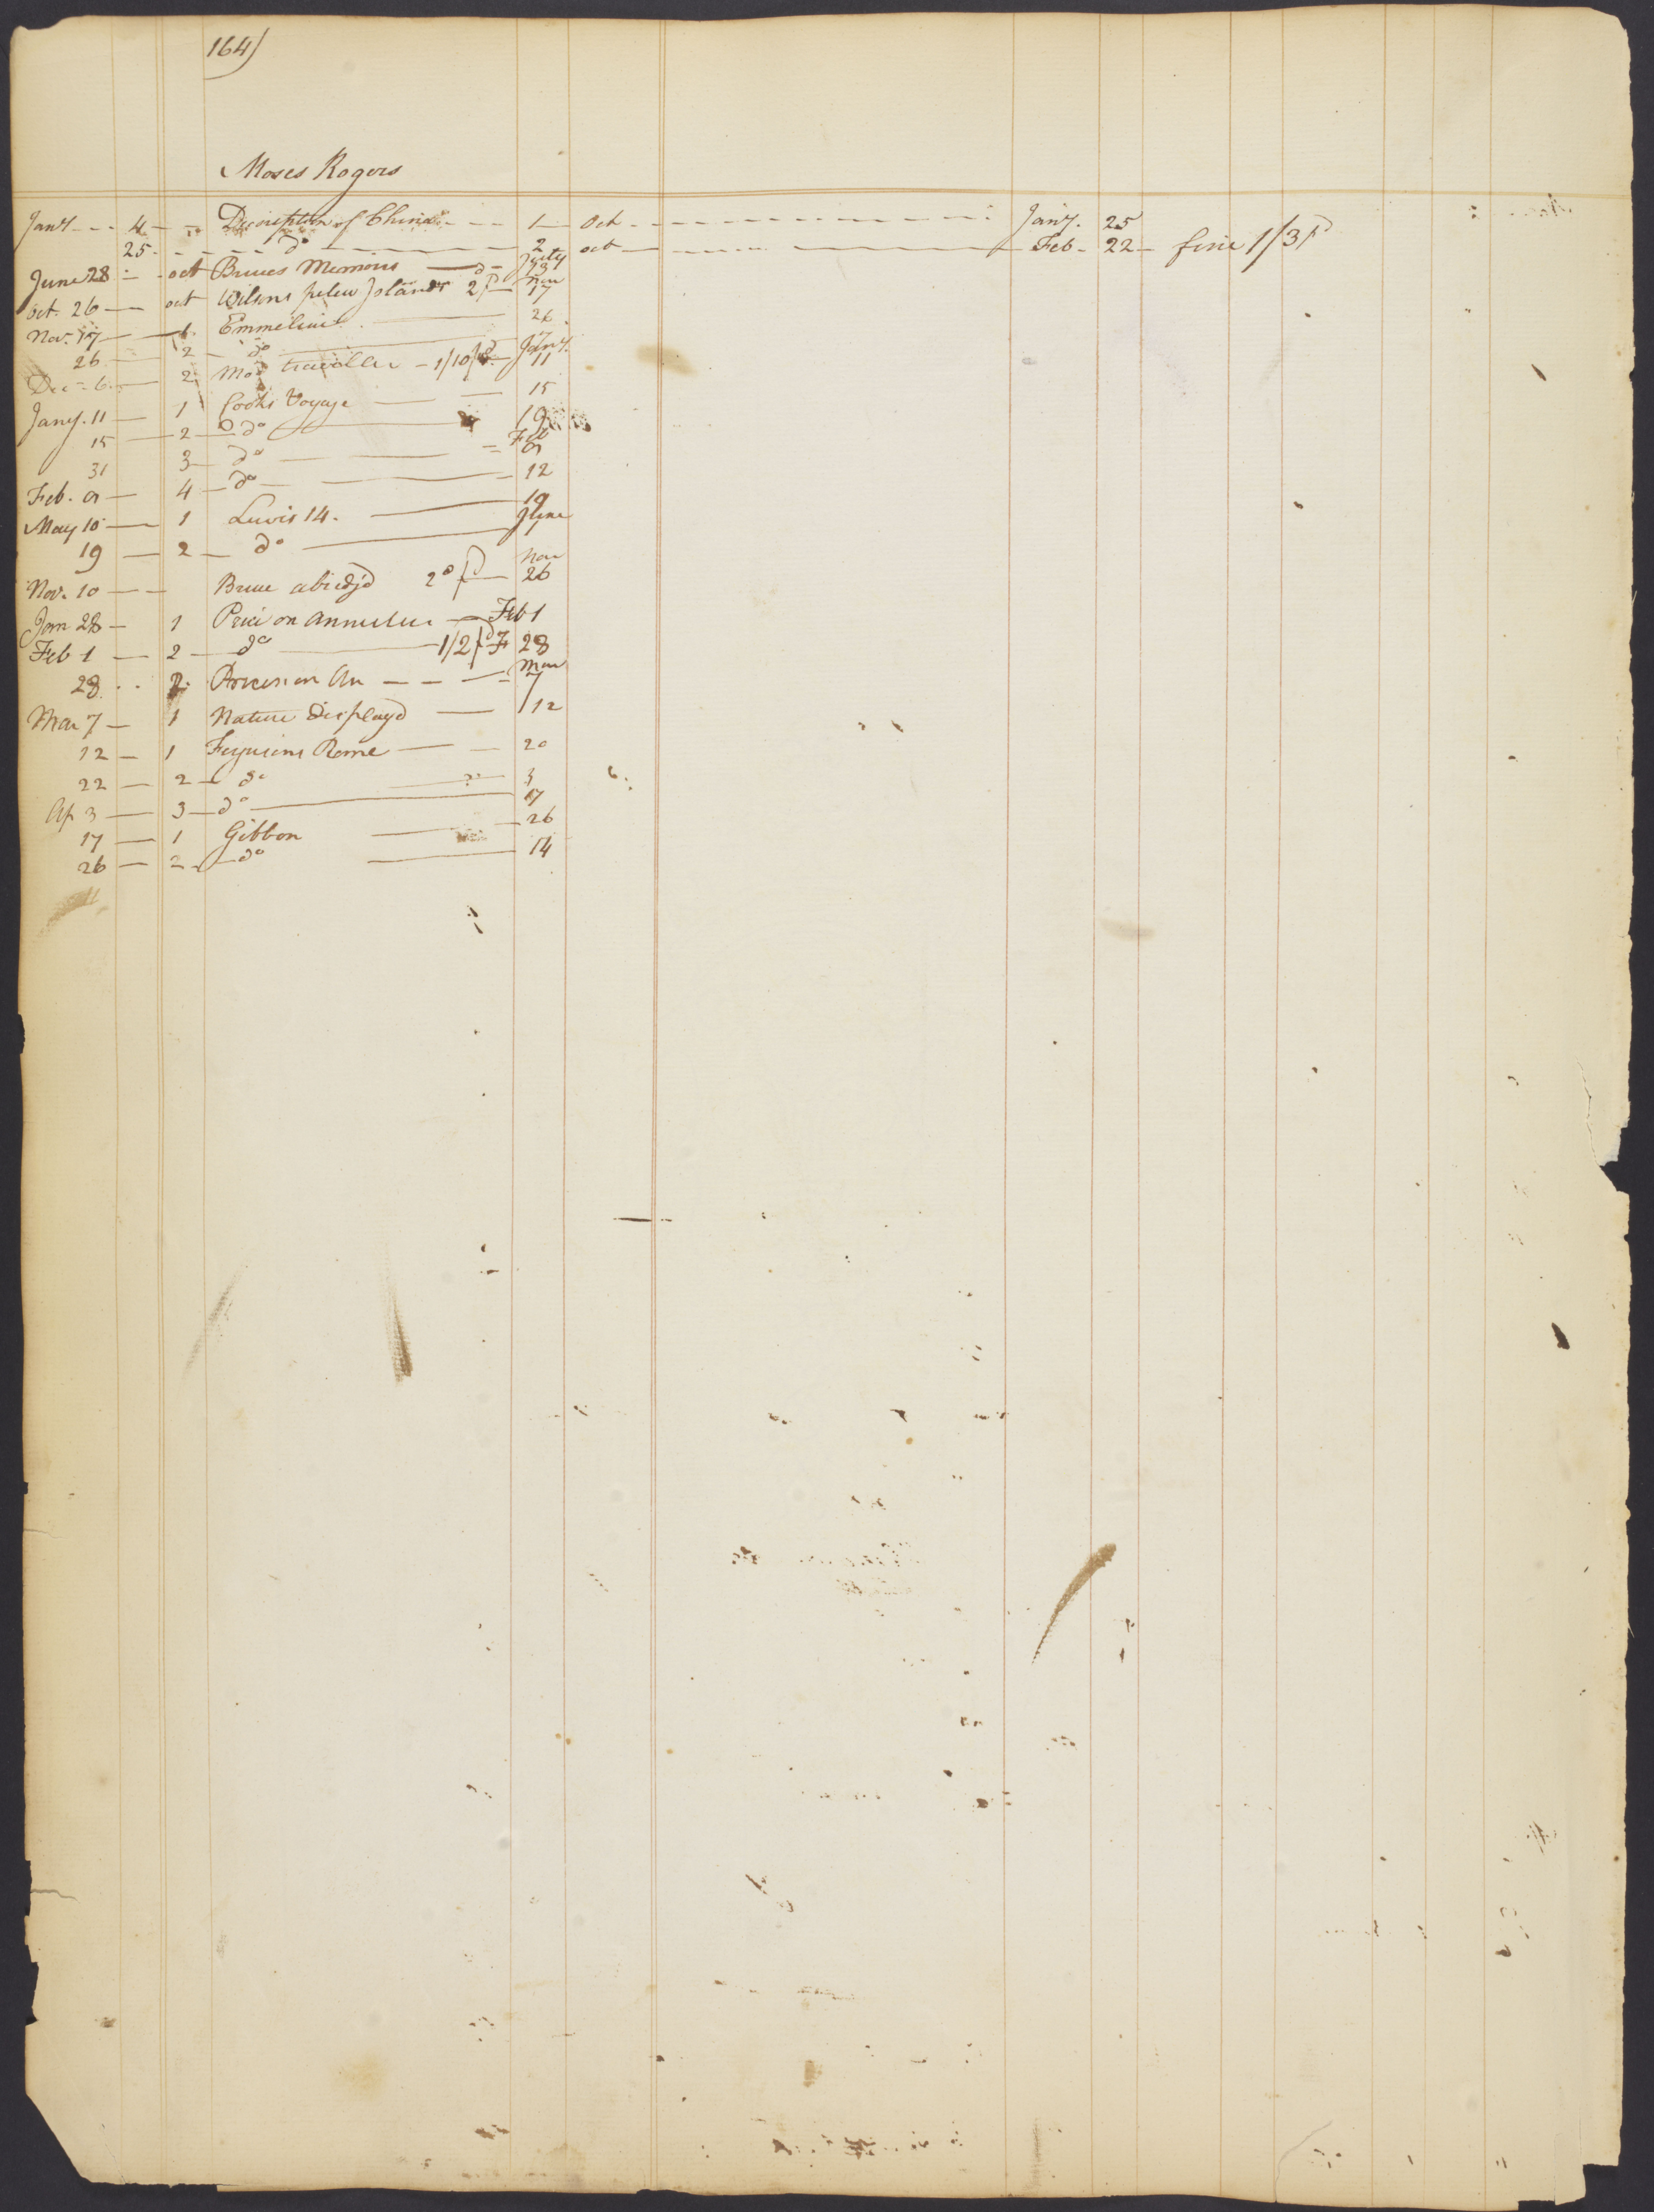 164)
Moses Rogers
Jany - - 4 - - Description of China - - - 1 - Oct - - - Jany. 25
25 - - - do - 2 oct - - - Feb - 22 - fine 1/3 pd
June 28 - oct Bruces Memoirs - July 13
Oct. 26 - oct Wilsons pelew Islands 2 pd - Nov 17
Nov. 17 - 1 Emmeline - 26
26 - 2 - do
Dec - 6 - 2 traveller - 1/10 pd - Jany. 11
Jany. 11 - 1 Cooks Voyage - 15
15 - 2 - do - 19
31 3 - do - Feb 9
Feb. 9 - 4 - do - 12
May 10 - 1 Lewis 14. - 19
19 - 2 - do - June
Nov. 10 - - Bruce abridjd 2d pd - Nov 26
Jan 28 - 1 Price on Annuities - Feb 1
Feb 1 - 2 - do - 1/2 pd F 28
28 - - 2 on An - - - Mar 7
Mar 7 - 1 Nature Displayd - 12
12 - 1 Fergusons Rome - 20
22 - 2 - do - 3
Ap 3 - 3 - do - 17
17 - 1 Gibbon - 26
26 - 2 - do - 14